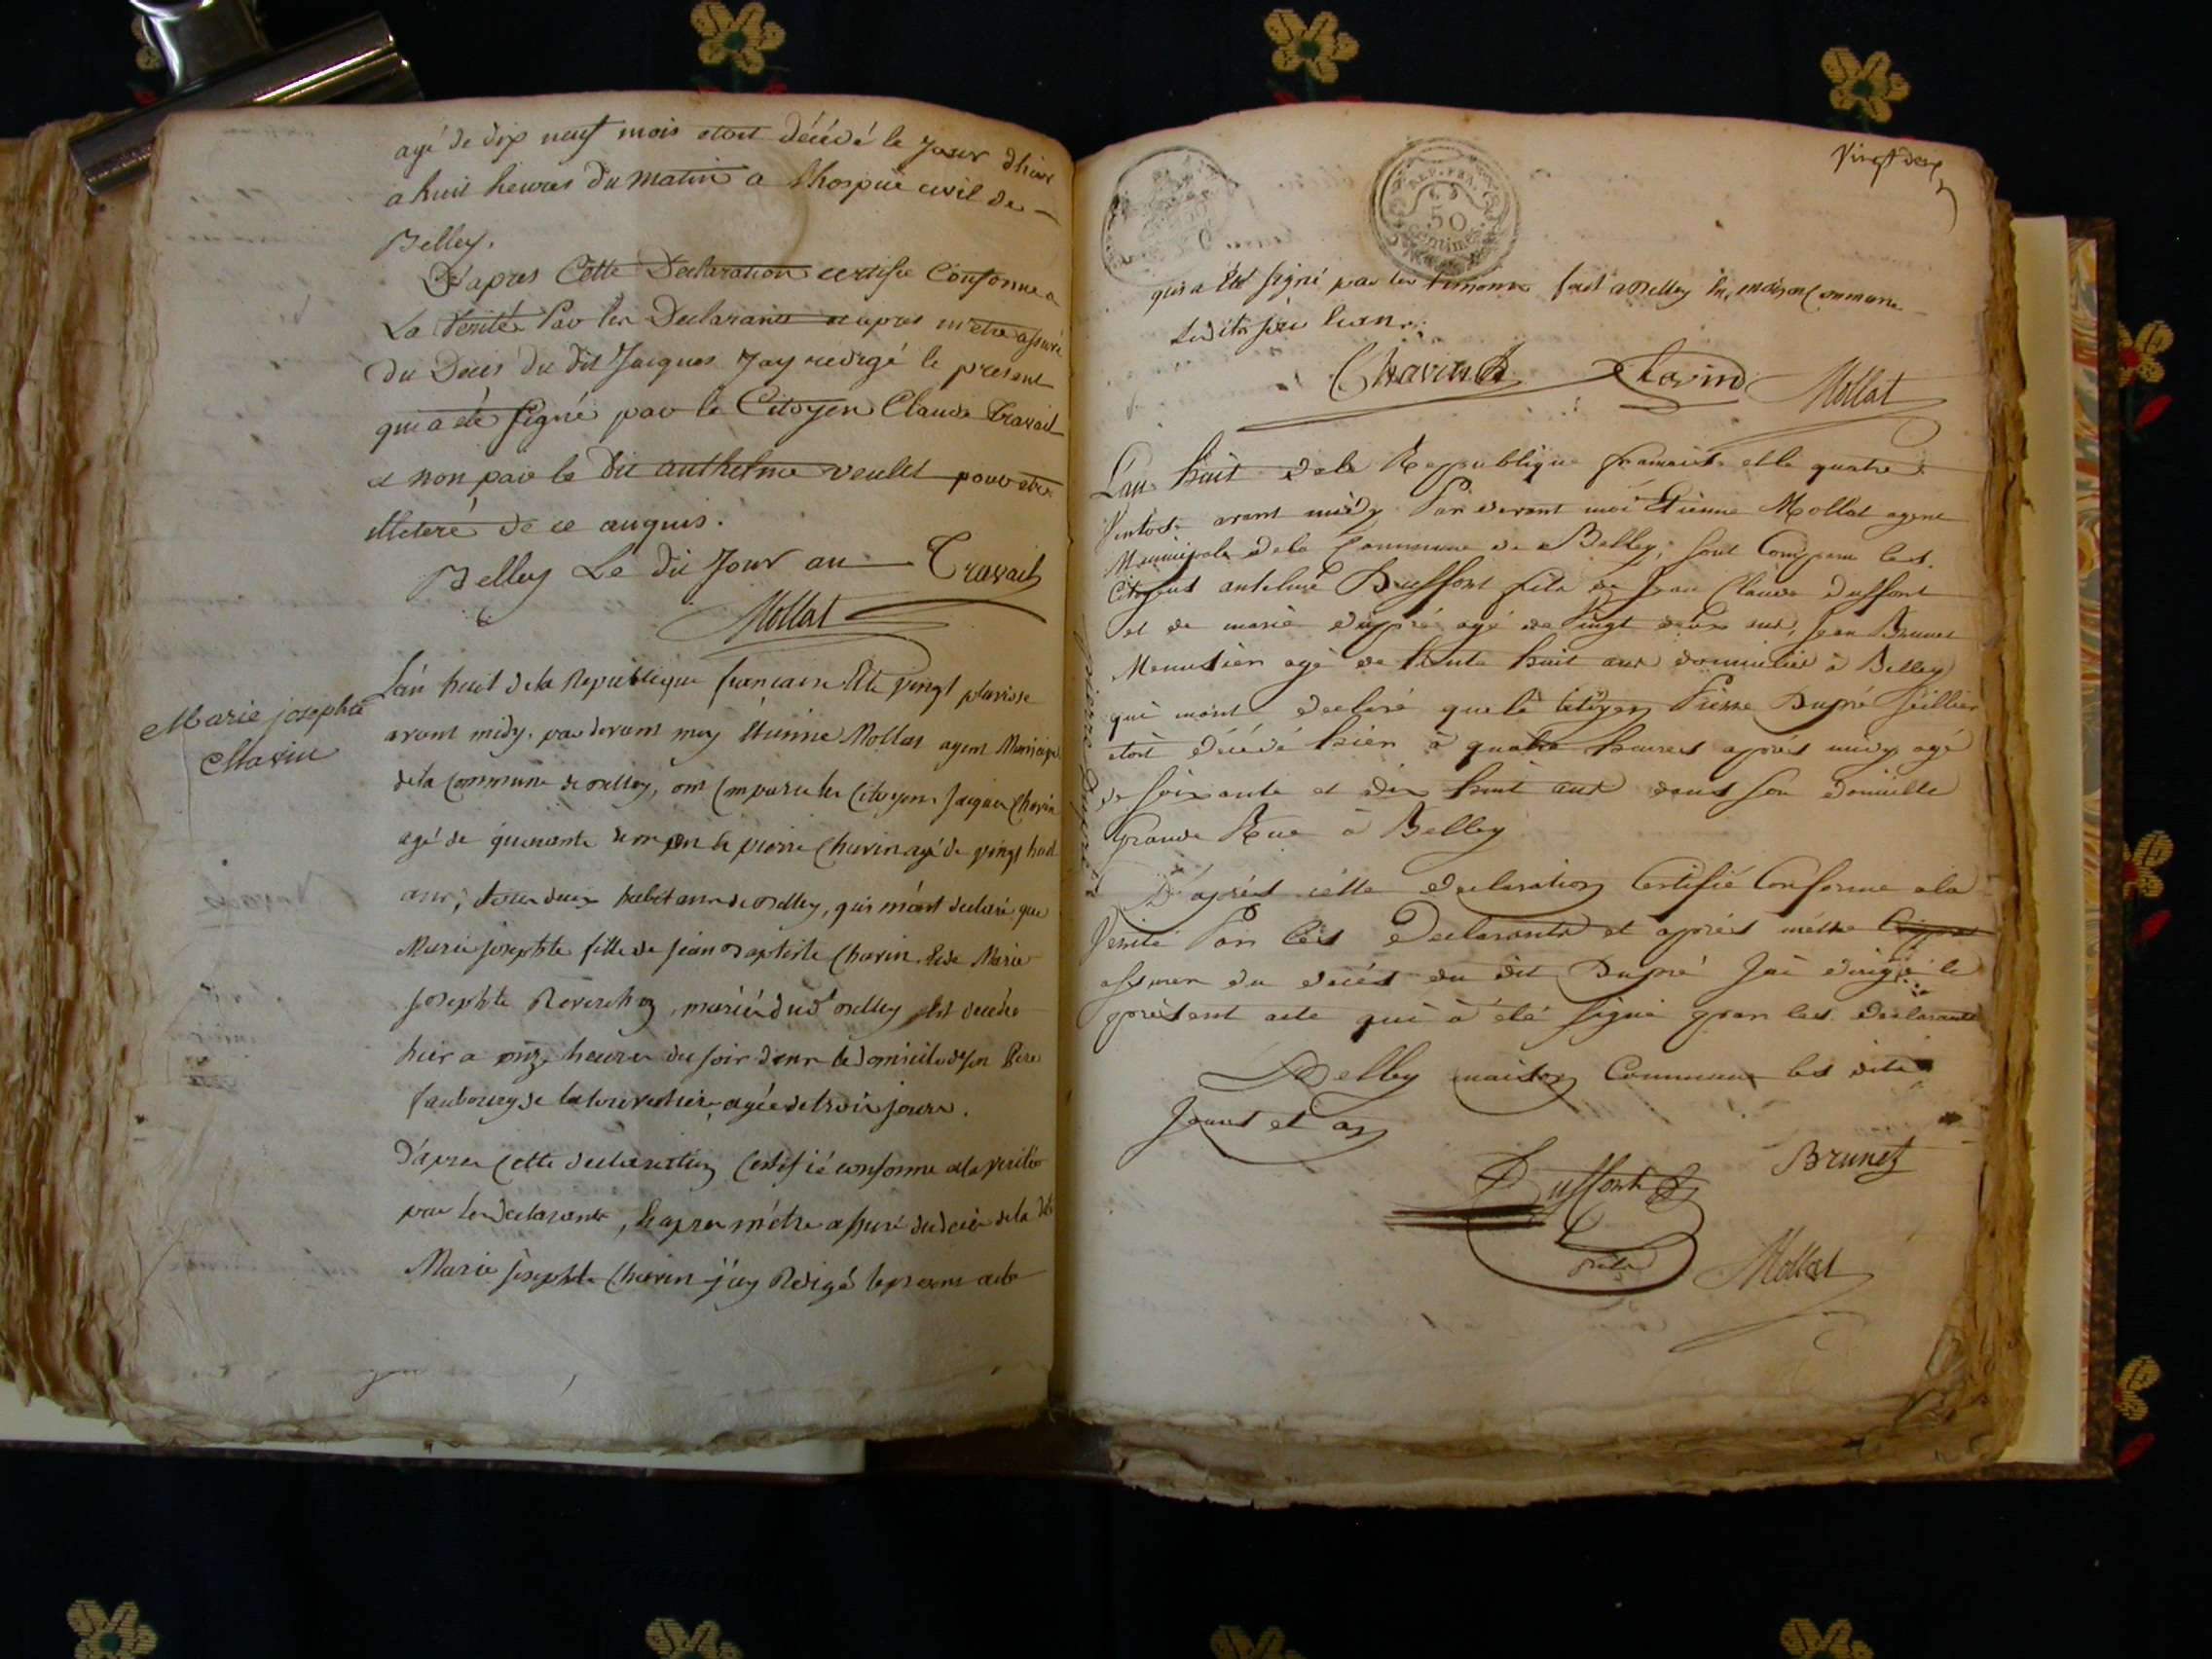 agé de dix neuf mois etoit décédé le Jour d'hier
a huit heures du matin a Lhospice civil de
Belley.
D'apres Cette Declaration certifié Conforme a
La Verité Par les Declarants et apres m'etre assuré
du Décés du dit Jacques Jay redigé le present
qui a été signé par le Citoyen Claude Travail
et non par le dit anthelme veullet pour etre
illeteré de ce anquis.
Belley Le dit Jour an Travail
Mollat
Marie josephte
Chavin
L'an huit de la Republique francaise Et le vingt pluviose
avant midy. par devant moy Etienne Mollat agent Municipal
de la Commune de Belley, ont Comparu les Citoyens Jacques Chavin
agé de quarante un an & pierre Chavin agé de vingt huit
ans, tous deux habitans de Belley, quis m'ont declaré que
Marie josephte fille de jean Baptiste Chavin & de Marie
josephte mariés dud Belley est decedée
hier a onze heures du soir dans le domicile de son Pere
faubourg de agée de trois jours.
D'apres Cette declaration Certifié conforme a la verité
par les declarants, & apres m'etre assuré du decés de la dte
Marie josephte Chavin j'ay Redigé le present acte
Vingt deux
REP. FRA.
50
Centimes
quis a Eté signé par les temoins fait a Belley En maison Commune
Lesdits jour & an.
Chavin Chavin Mollat
L'an huit de la Republique francaise et le quatre
Ventose avant midy Par devant moi Etienne Mollat agent
Municipale de la Commune de Belley, sont Comparu les
Citoyens antelme Duffont fils de Jean Claude Duffont
et de marie dupré agé de Vingt deux ans, Jean Brunet
Menusier agé de trente huit ans domicilié à Belley
qui m'ont declaré que le Citoyen Pierre Dupré
etoit décédé hier à quatre heures aprés midy agé
de soixante et dix huit ans dans son domicille
Grande Rue à Belley
Pierre Dupré
D'aprés cette declaration Certifié Conforme a la
Verité Par les Declarants et aprés m'étre
assurer du décés du dit Dupré J'ai dirigé le
présent acte qui à été signé par les declarants
Belley maison Commune les dits
Jours et an
Duffont Brunet
fils Mollat